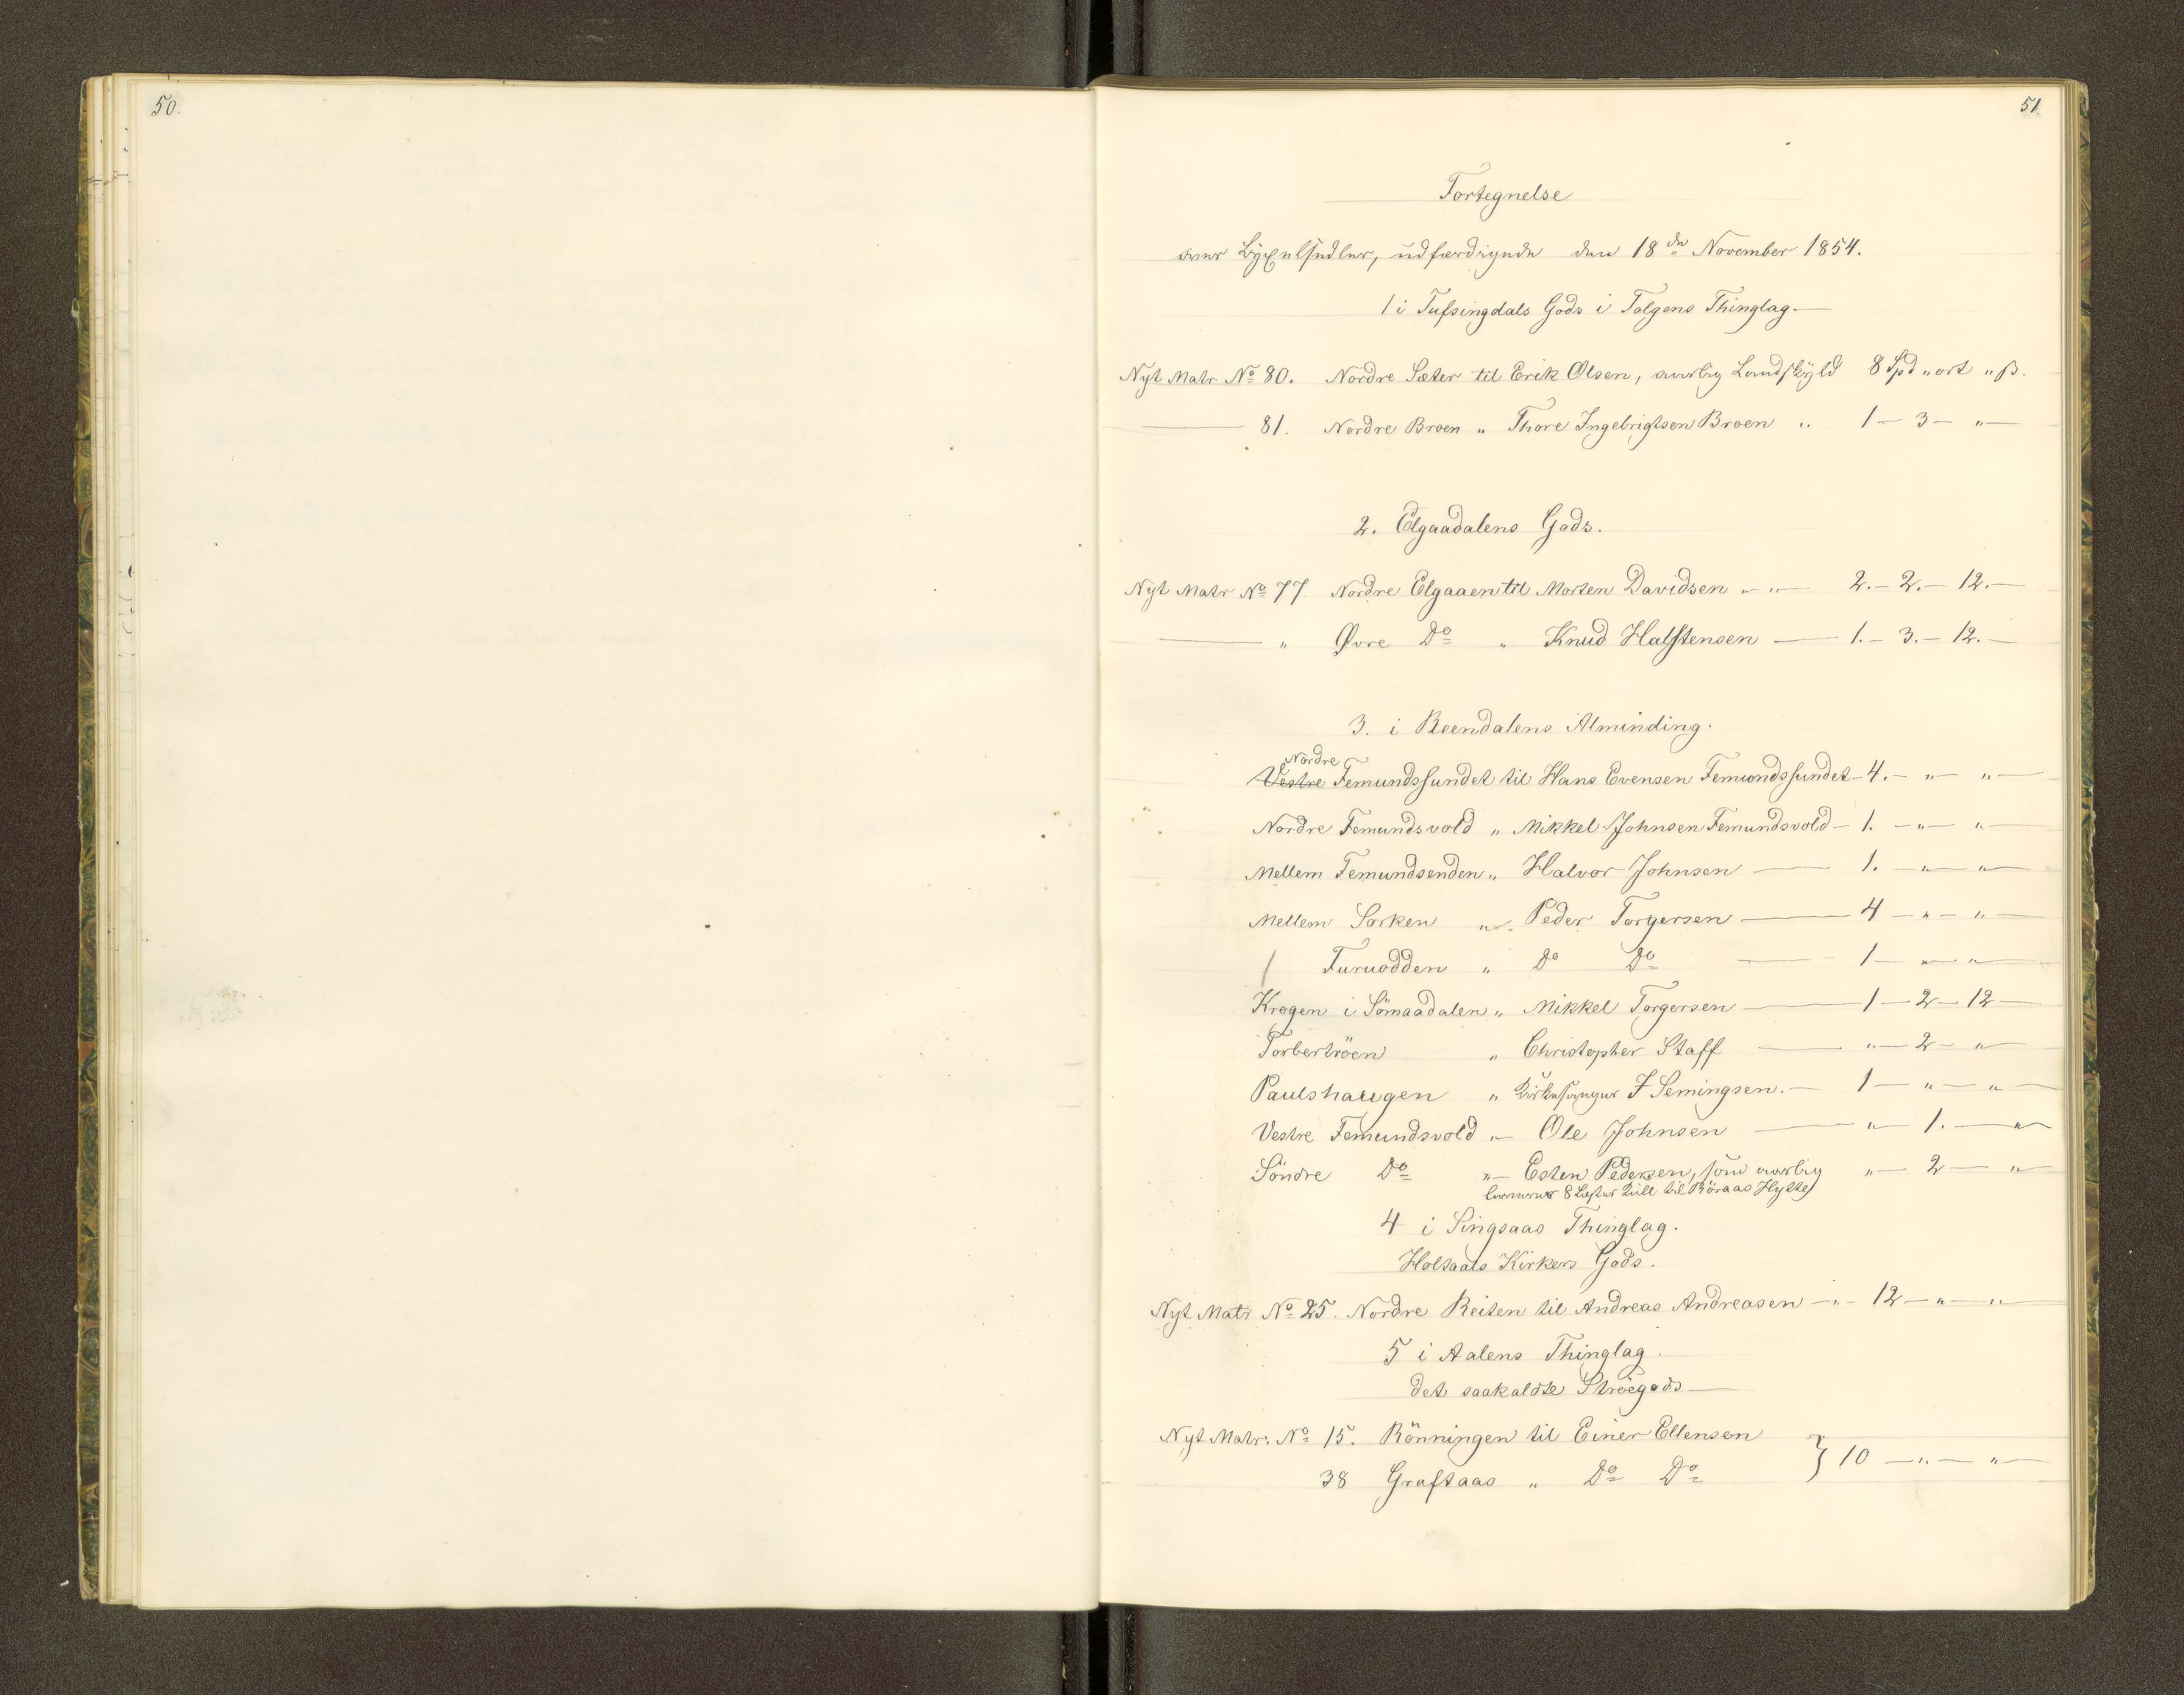 50.
51.
Fortegnelse
over Byxelsedler, udfærdigede den 18de November 1854.
1 i Tufsingdals Gods i Tolgens Thinglag.—
Nyt Matr No 80. Nordre Sæter til Erik Olsen, aarlig Landskyld 8 Spd " ort " ß.
— 81. Nordre Broen " Thore Ingebrigtsen Broen " 1 — 3 — " —
2. Elgaadalens Gods.
Nyt Matr No 77 Nordre Elgaaen til Morten Davidsen " " — 2. — 2. — 12. —
— " Øvre Do " Knud Halstensen — 1. — 3. — 12. —
3. i Reendalens Alminding.
Nordre
Vestre Femundssundet til Hans Evensen Femundssundet — 4. — " — " —
Nordre Femundsvold " Mikkel Johnsen Femundsvold — 1. — " — " —
Mellem Femundsenden " Halvor Johnsen — 1. — " — " —
Mellem Sorken " Peder Torgersen — 4 — " — " —
/ Furuodden " Do Do — 1 — " — " —
Krogen i Sömaadalen " Mikkel Torgersen — 1 — 2 — 12 —
Torbertröen " Christopher Staff — " — 2 — " —
Paulshaugen " Kirkesanger F Semingsen. — 1 — " — " —
Vestre Femundsvold " — Ole Johnsen — " — 1. — " —
Söndre Do " — Esten Pedersen, som aarlig " — 2 — " —
leverer 8 Læster Kull til Röraas Hytte
4 i Singsaas Thinglag.
Holtaals Kirkers Gods.
Nyt Matr No 25. Nordre Reiten til Andreas Andreasen — " — 12 — " — "
5 i Aalens Thinglag.
det saakaldte Ströegods —
Nyt Matr. No 15. Rönningen til Einer Ellensen
38 Graftaas " Do Do } 10 — " — " —